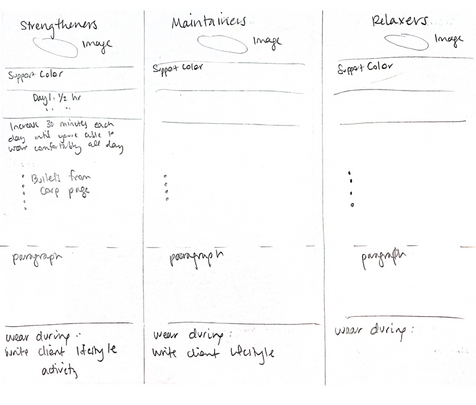 Strengtheners
Image
Support Color
Day 1: 1/2 hr
" "
Increase 30 minutes each
day until you're able to
wear comfortably all day
Bullets from
Corp page
paragraph
wear during:
write client lifestyle
activity
Maintainers
Image
Support Color
paragraph
wear during:
write client lifestyle
Relaxers
Image
Support Color
paragraph
wear during: